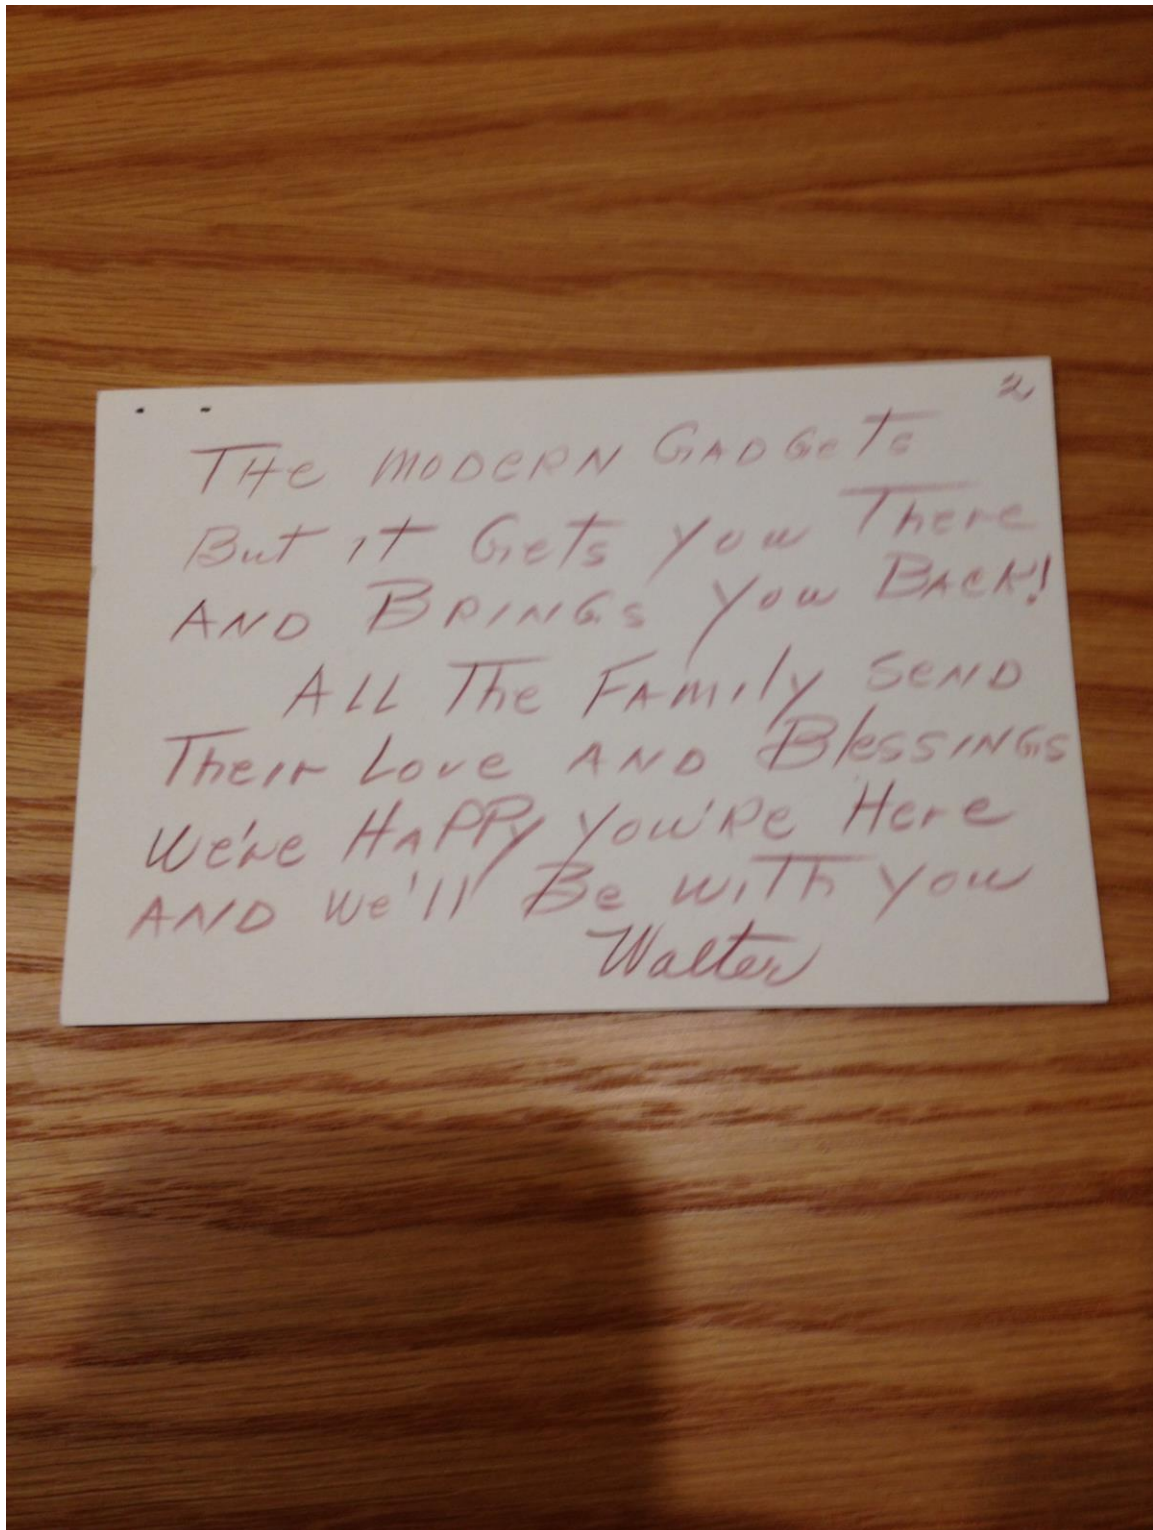 2
THe MODERN GADGeTs
But it GeTs you There
AND BRINGs you BACK!
ALL The FAmily SeND
Their Love AND BlessINGs
We're HaPPy you'Re Here
AND we'll Be wiTh you
Walter